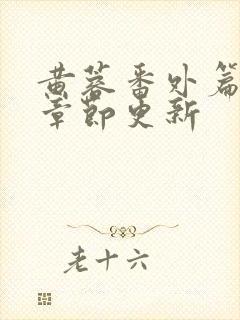 黄蓉番外篇
章节更新
老十六